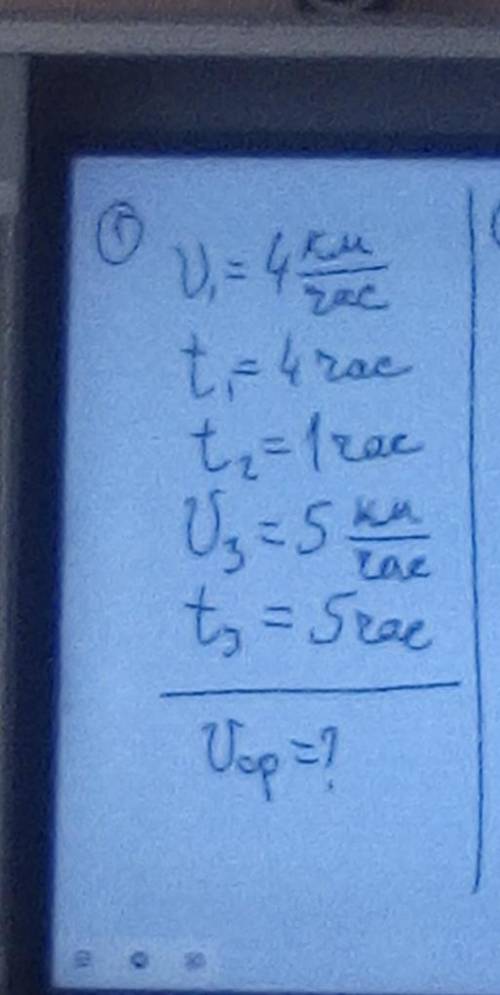 ① υ₁ = 4 км/час
t₁ = 4 час
t₂ = 1 час
υ₃ = 5 км/час
t₃ = 5 час
υср = ?